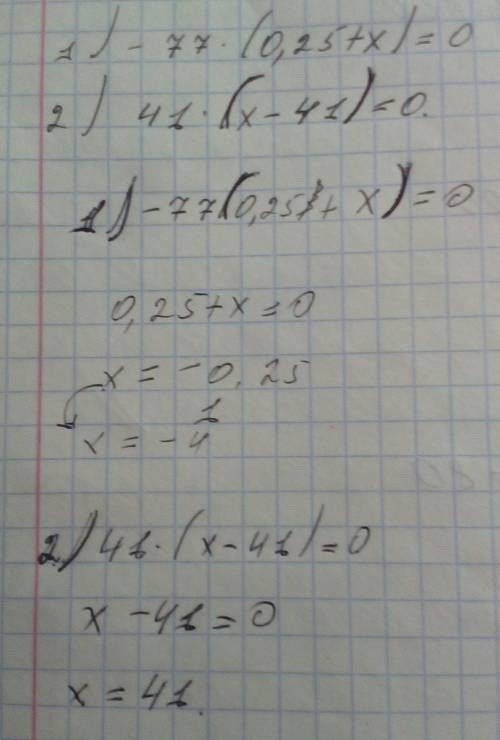 1) - 77 · (0,25+x) = 0
2) 41 · (x - 41) = 0.
1) - 77(0,25 + x) = 0
0,25+x = 0
x = - 0,25
1
x = - 4
2) 41 · (x - 41) = 0
x - 41 = 0
x = 41.